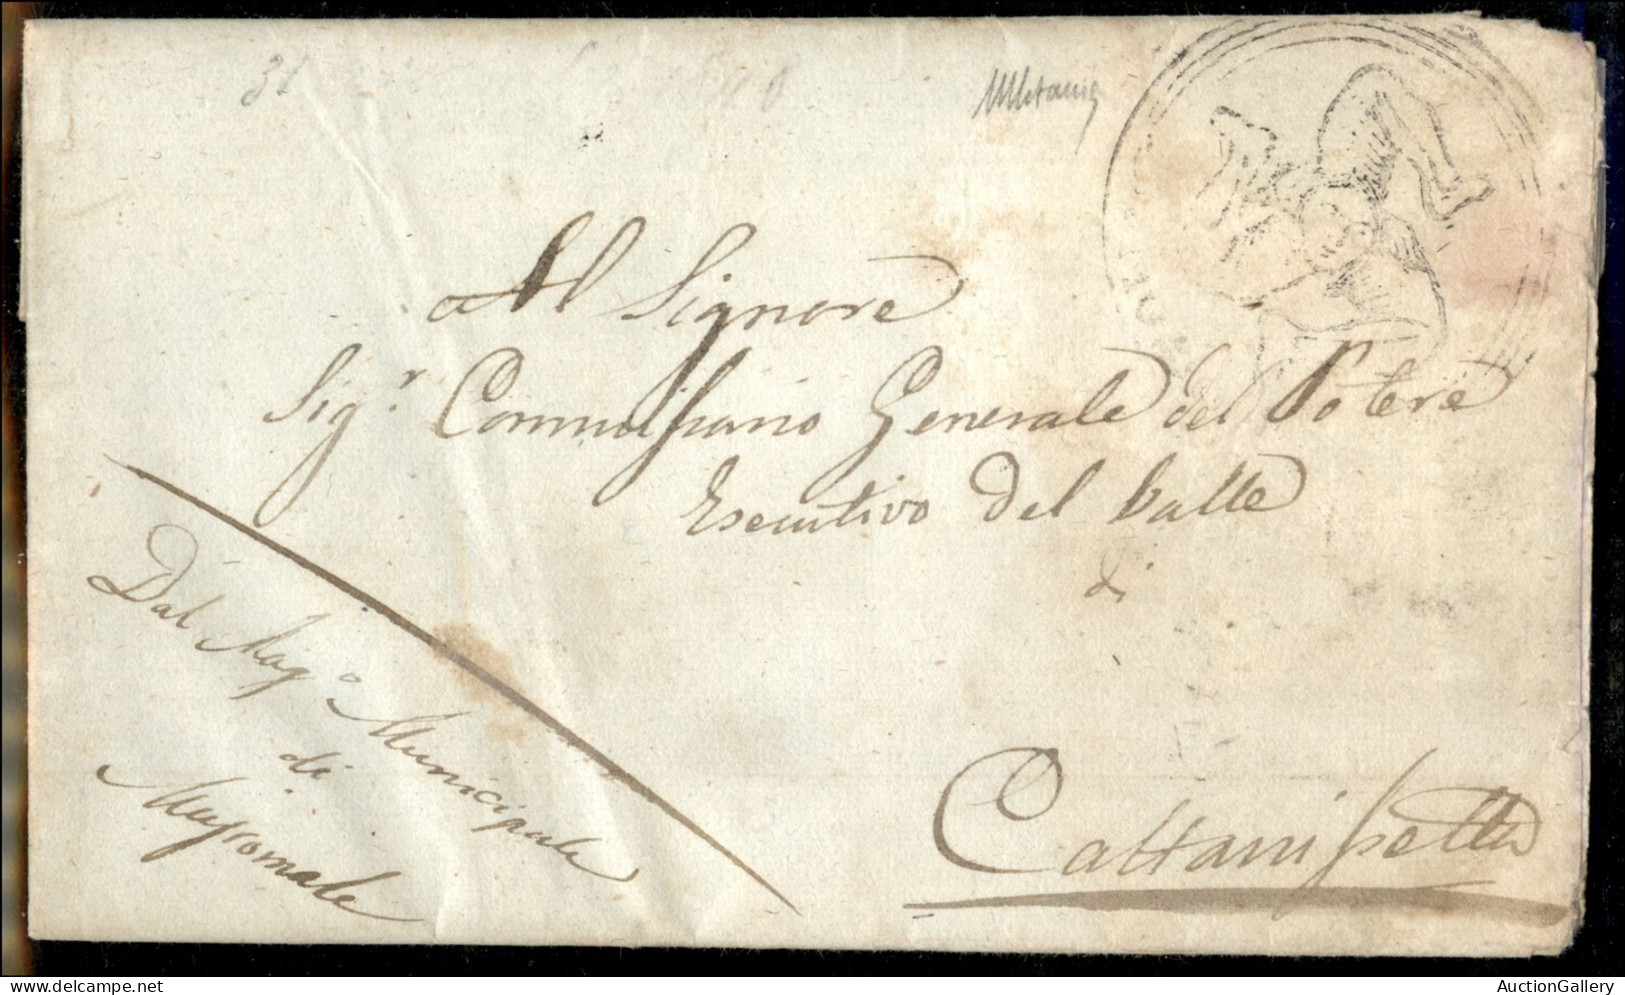 31
Al Signore
Sig.r Commissario Generale del Potere
Esecutivo del Valle
di
Caltanissetta
Dal Mag.o Municipale
di
Mussomale
AuctionGallery